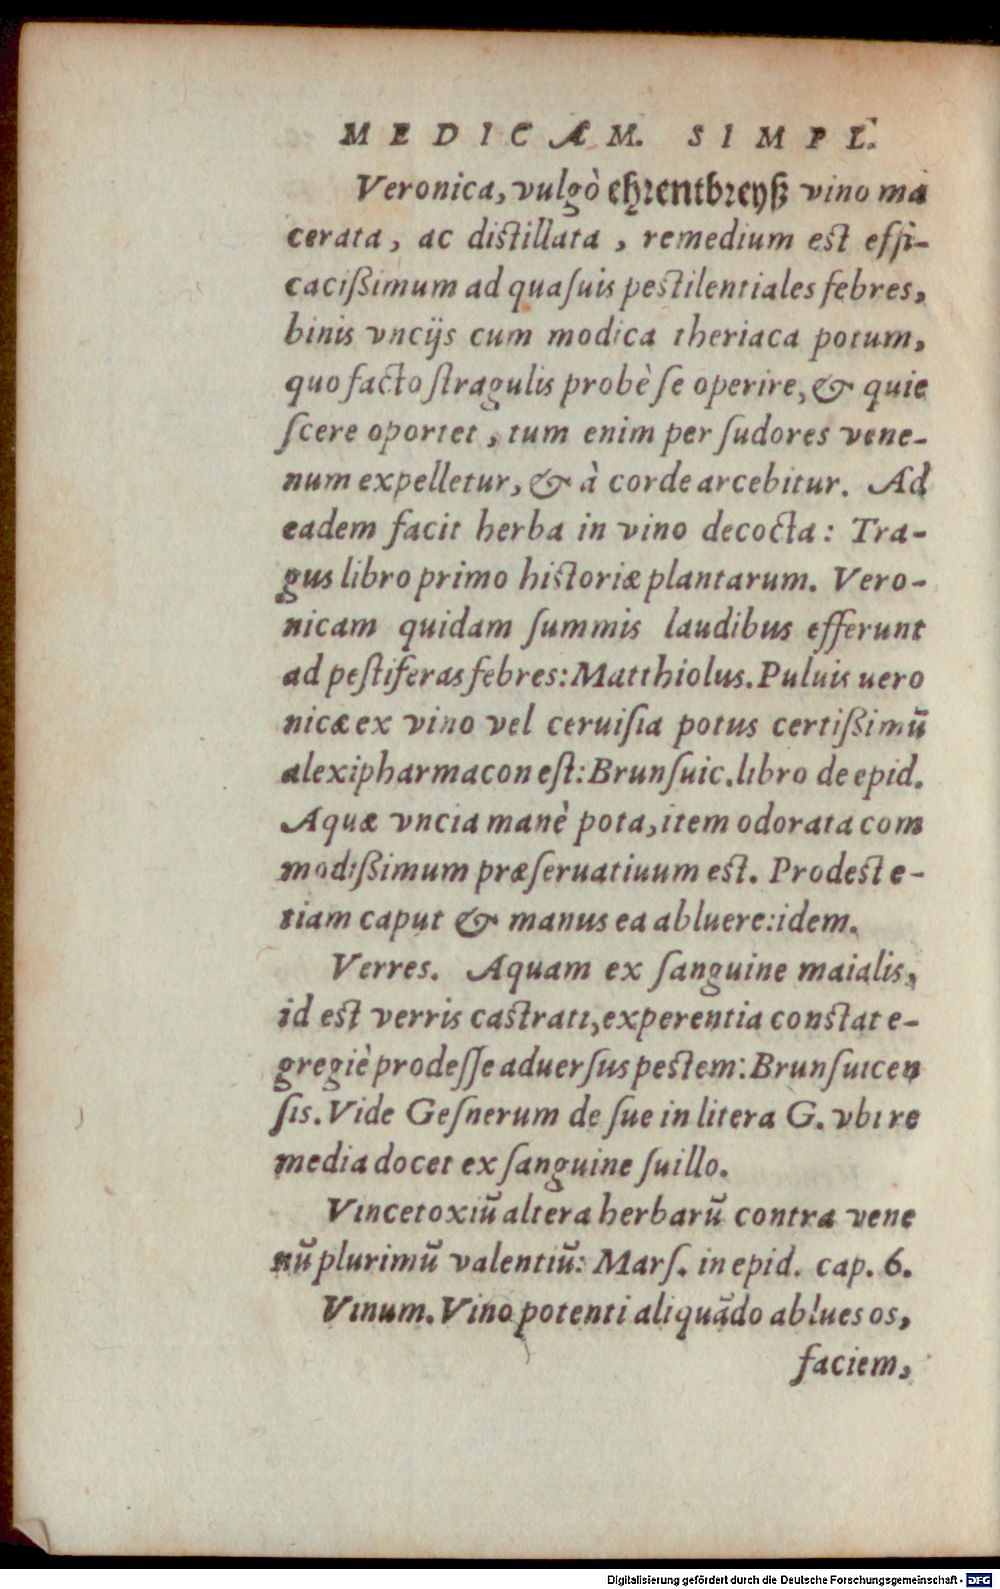 MEDICÆM. SIMPL.
Veronica, vulgò ehrentbreyß vino ma
cerata, ac distillata, remedium est effi-
cacißimum ad quaſuis pestilentiales febres,
binis vncijs cum modica theriaca potum,
quo facto ſtragulis probè ſe operire, & quie
ſcere oportet, tum enim per ſudores vene-
num expelletur, & à corde arcebitur. Ad
eadem facit herba in vino decocta: Tra-
gus libro primo historiæ plantarum. Vero-
nicam quidam ſummis laudibus efferunt
ad peſtiferas febres: Matthiolus. Puluis uero
nicæ ex vino vel ceruiſia potus certißimū
alexipharmacon eſt: Brunſuic. libro de epid.
Aquæ vncia manè pota, item odorata com
modißimum præſeruatiuum est. Prodest e-
tiam caput & manus ea abluere: idem.
Verres. Aquam ex ſanguine maialis,
id est verris castrati, experentia constat e-
gregiè prodeſſe aduerſus pestem: Brunſuicen
ſis. Vide Geſnerum de ſue in litera G. vbi re
media docet ex ſanguine ſuillo.
Vincetoxiū altera herbarū contra vene
nū plurimū valentiū: Marſ. in epid. cap. 6.
Vinum. Vino potenti aliquādo ablues os,
faciem,
Digitalisierung gefördert durch die Deutsche Forschungsgemeinschaft - DFG